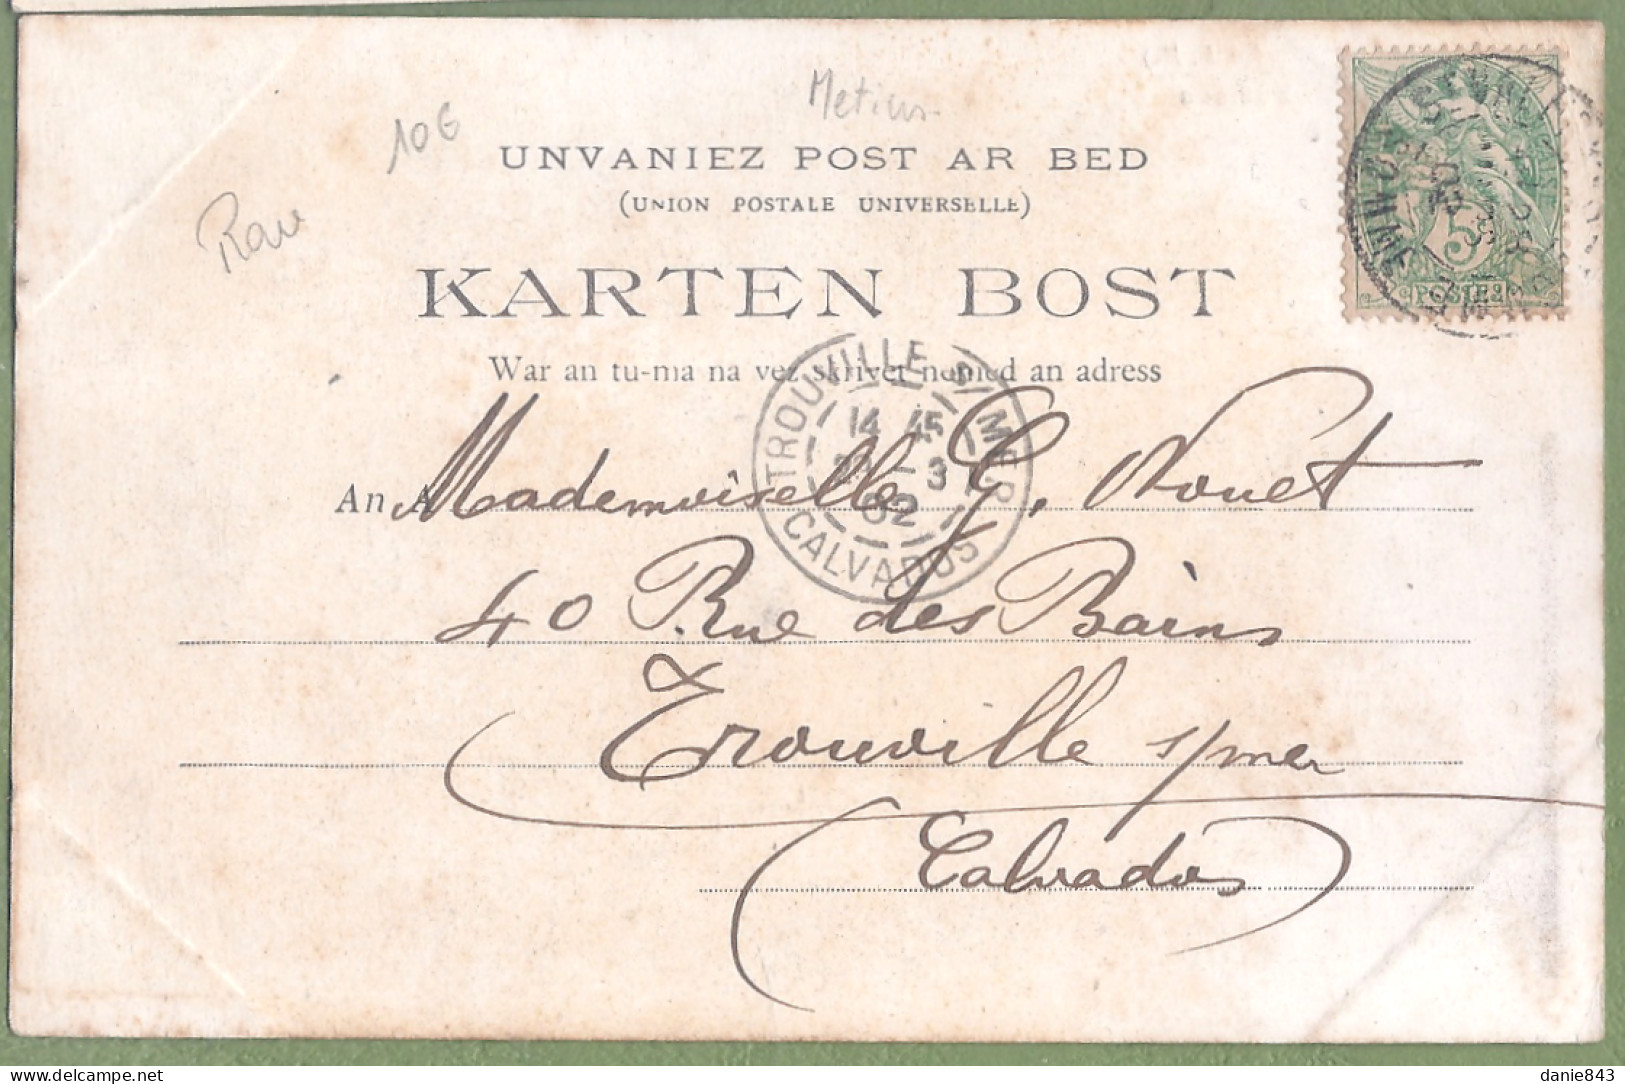 Metiers
10€
Rare
UNVANIEZ POST AR BED
(UNION POSTALE UNIVERSELLE)
KARTEN BOST
War an tu-ma na vez skrivet nemed an adress
TROUVILLE S MER
14 45
-3
02
CALVADOS
5
POSTES
SOMME
An A
Mademoiselle G. Nouet
40 Rue des Bains
Trouville s/mer
Calvados
danie843